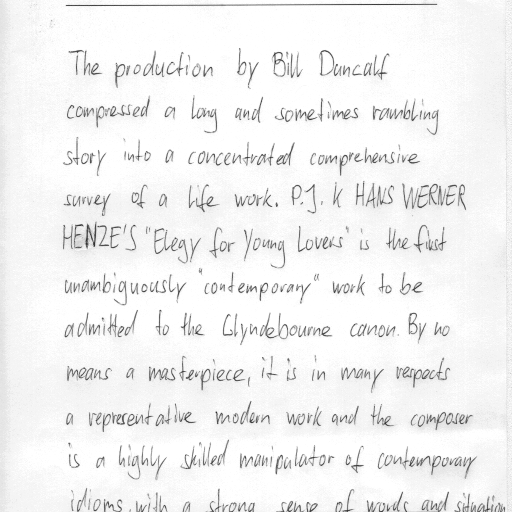 The production by Bill Duncalf
compressed a long and sometimes rambling
story into a concentrated comprehensive
survey of a life work. P.J. K HANS WERNER
HENZE'S "Elegy for Young Lovers" is the first
unambiguously "contemporary" work to be
admitted to the Glyndebourne canon. By no
means a masterpiece, it is in many respects
a representative modern work and the composer
is a highly skilled manipulator of contemporary
idioms, with a strong sense of words and situation